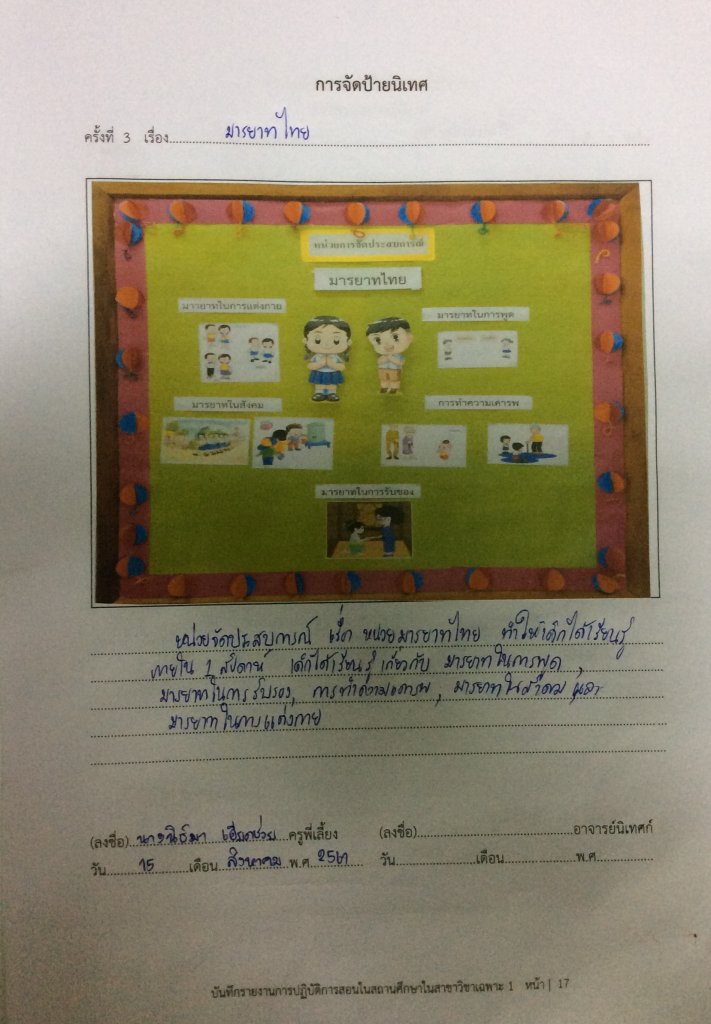 การจัดป้ายนิเทศ
ครั้งที่ 3 เรื่อง มารยาทไทย
หน่วยการจัดประสบการณ์
มารยาทไทย
มารยาทในการแต่งกาย
มารยาทในการพูด
มารยาทในสังคม
การทำความเคารพ
มารยาทในการรับของ
หน่วยจัดประสบการณ์ เรื่อง หน่วยมารยาทไทย ทำให้เด็กได้เรียนรู้
ภายใน 1 สัปดาห์ เด็กได้เรียนรู้เกี่ยวกับ มารยาทในการพูด ,
มารยาทในการรับของ, การทำความเคารพ, มารยาทในสังคม และ
มารยาทในการแต่งกาย
(ลงชื่อ) ครูพี่เลี้ยง (ลงชื่อ) อาจารย์นิเทศก์
วัน 15 เดือน สิงหาคม พ.ศ. 2561 วัน เดือน พ.ศ.
บันทึกรายงานการปฏิบัติการสอนในสถานศึกษาในสาขาวิชาเฉพาะ 1 หน้า | 17